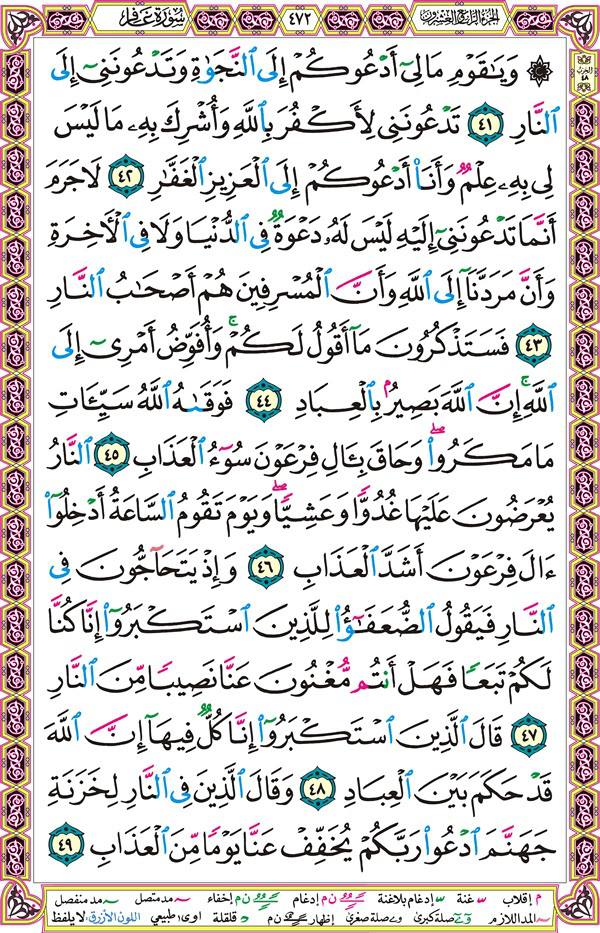 الجزء الرابع والعشرون ٤٧٢ سورة غافر
الحزب ٤٨
۞ وَيَٰقَوْمِ مَا لِىٓ أَدْعُوكُمْ إِلَى ٱلنَّجَوٰةِ وَتَدْعُونَنِىٓ إِلَى
ٱلنَّارِ ٤١ تَدْعُونَنِى لِأَكْفُرَ بِٱللَّهِ وَأُشْرِكَ بِهِۦ مَا لَيْسَ
لِى بِهِۦ عِلْمٌ وَأَنَا۠ أَدْعُوكُمْ إِلَى ٱلْعَزِيزِ ٱلْغَفَّٰرِ ٤٢ لَا جَرَمَ
أَنَّمَا تَدْعُونَنِىٓ إِلَيْهِ لَيْسَ لَهُۥ دَعْوَةٌ فِى ٱلدُّنْيَا وَلَا فِى ٱلْءَاخِرَةِ
وَأَنَّ مَرَدَّنَآ إِلَى ٱللَّهِ وَأَنَّ ٱلْمُسْرِفِينَ هُمْ أَصْحَٰبُ ٱلنَّارِ
٤٣ فَسَتَذْكُرُونَ مَآ أَقُولُ لَكُمْ ۚ وَأُفَوِّضُ أَمْرِىٓ إِلَى
ٱللَّهِ ۚ إِنَّ ٱللَّهَ بَصِيرٌۢ بِٱلْعِبَادِ ٤٤ فَوَقَىٰهُ ٱللَّهُ سَيِّـَٔاتِ
مَا مَكَرُوا۟ ۖ وَحَاقَ بِـَٔالِ فِرْعَوْنَ سُوٓءُ ٱلْعَذَابِ ٤٥ ٱلنَّارُ
يُعْرَضُونَ عَلَيْهَا غُدُوًّا وَعَشِيًّا ۖ وَيَوْمَ تَقُومُ ٱلسَّاعَةُ أَدْخِلُوٓا۟
ءَالَ فِرْعَوْنَ أَشَدَّ ٱلْعَذَابِ ٤٦ وَإِذْ يَتَحَآجُّونَ فِى
ٱلنَّارِ فَيَقُولُ ٱلضُّعَفَٰٓؤُا۟ لِلَّذِينَ ٱسْتَكْبَرُوٓا۟ إِنَّا كُنَّا
لَكُمْ تَبَعًا فَهَلْ أَنتُم مُّغْنُونَ عَنَّا نَصِيبًا مِّنَ ٱلنَّارِ
٤٧ قَالَ ٱلَّذِينَ ٱسْتَكْبَرُوٓا۟ إِنَّا كُلٌّ فِيهَآ إِنَّ ٱللَّهَ
قَدْ حَكَمَ بَيْنَ ٱلْعِبَادِ ٤٨ وَقَالَ ٱلَّذِينَ فِى ٱلنَّارِ لِخَزَنَةِ
جَهَنَّمَ ٱدْعُوا۟ رَبَّكُمْ يُخَفِّفْ عَنَّا يَوْمًا مِّنَ ٱلْعَذَابِ ٤٩
م إقلاب غنة إدغام بلاغنة ن م إدغام إخفاء مد متصل مد منفصل
المد اللازم صلة كبرى صلة صغرى إظهار ن م قلقلة اوى؛ طبيعي اللون الأزرق: لا يلفظ